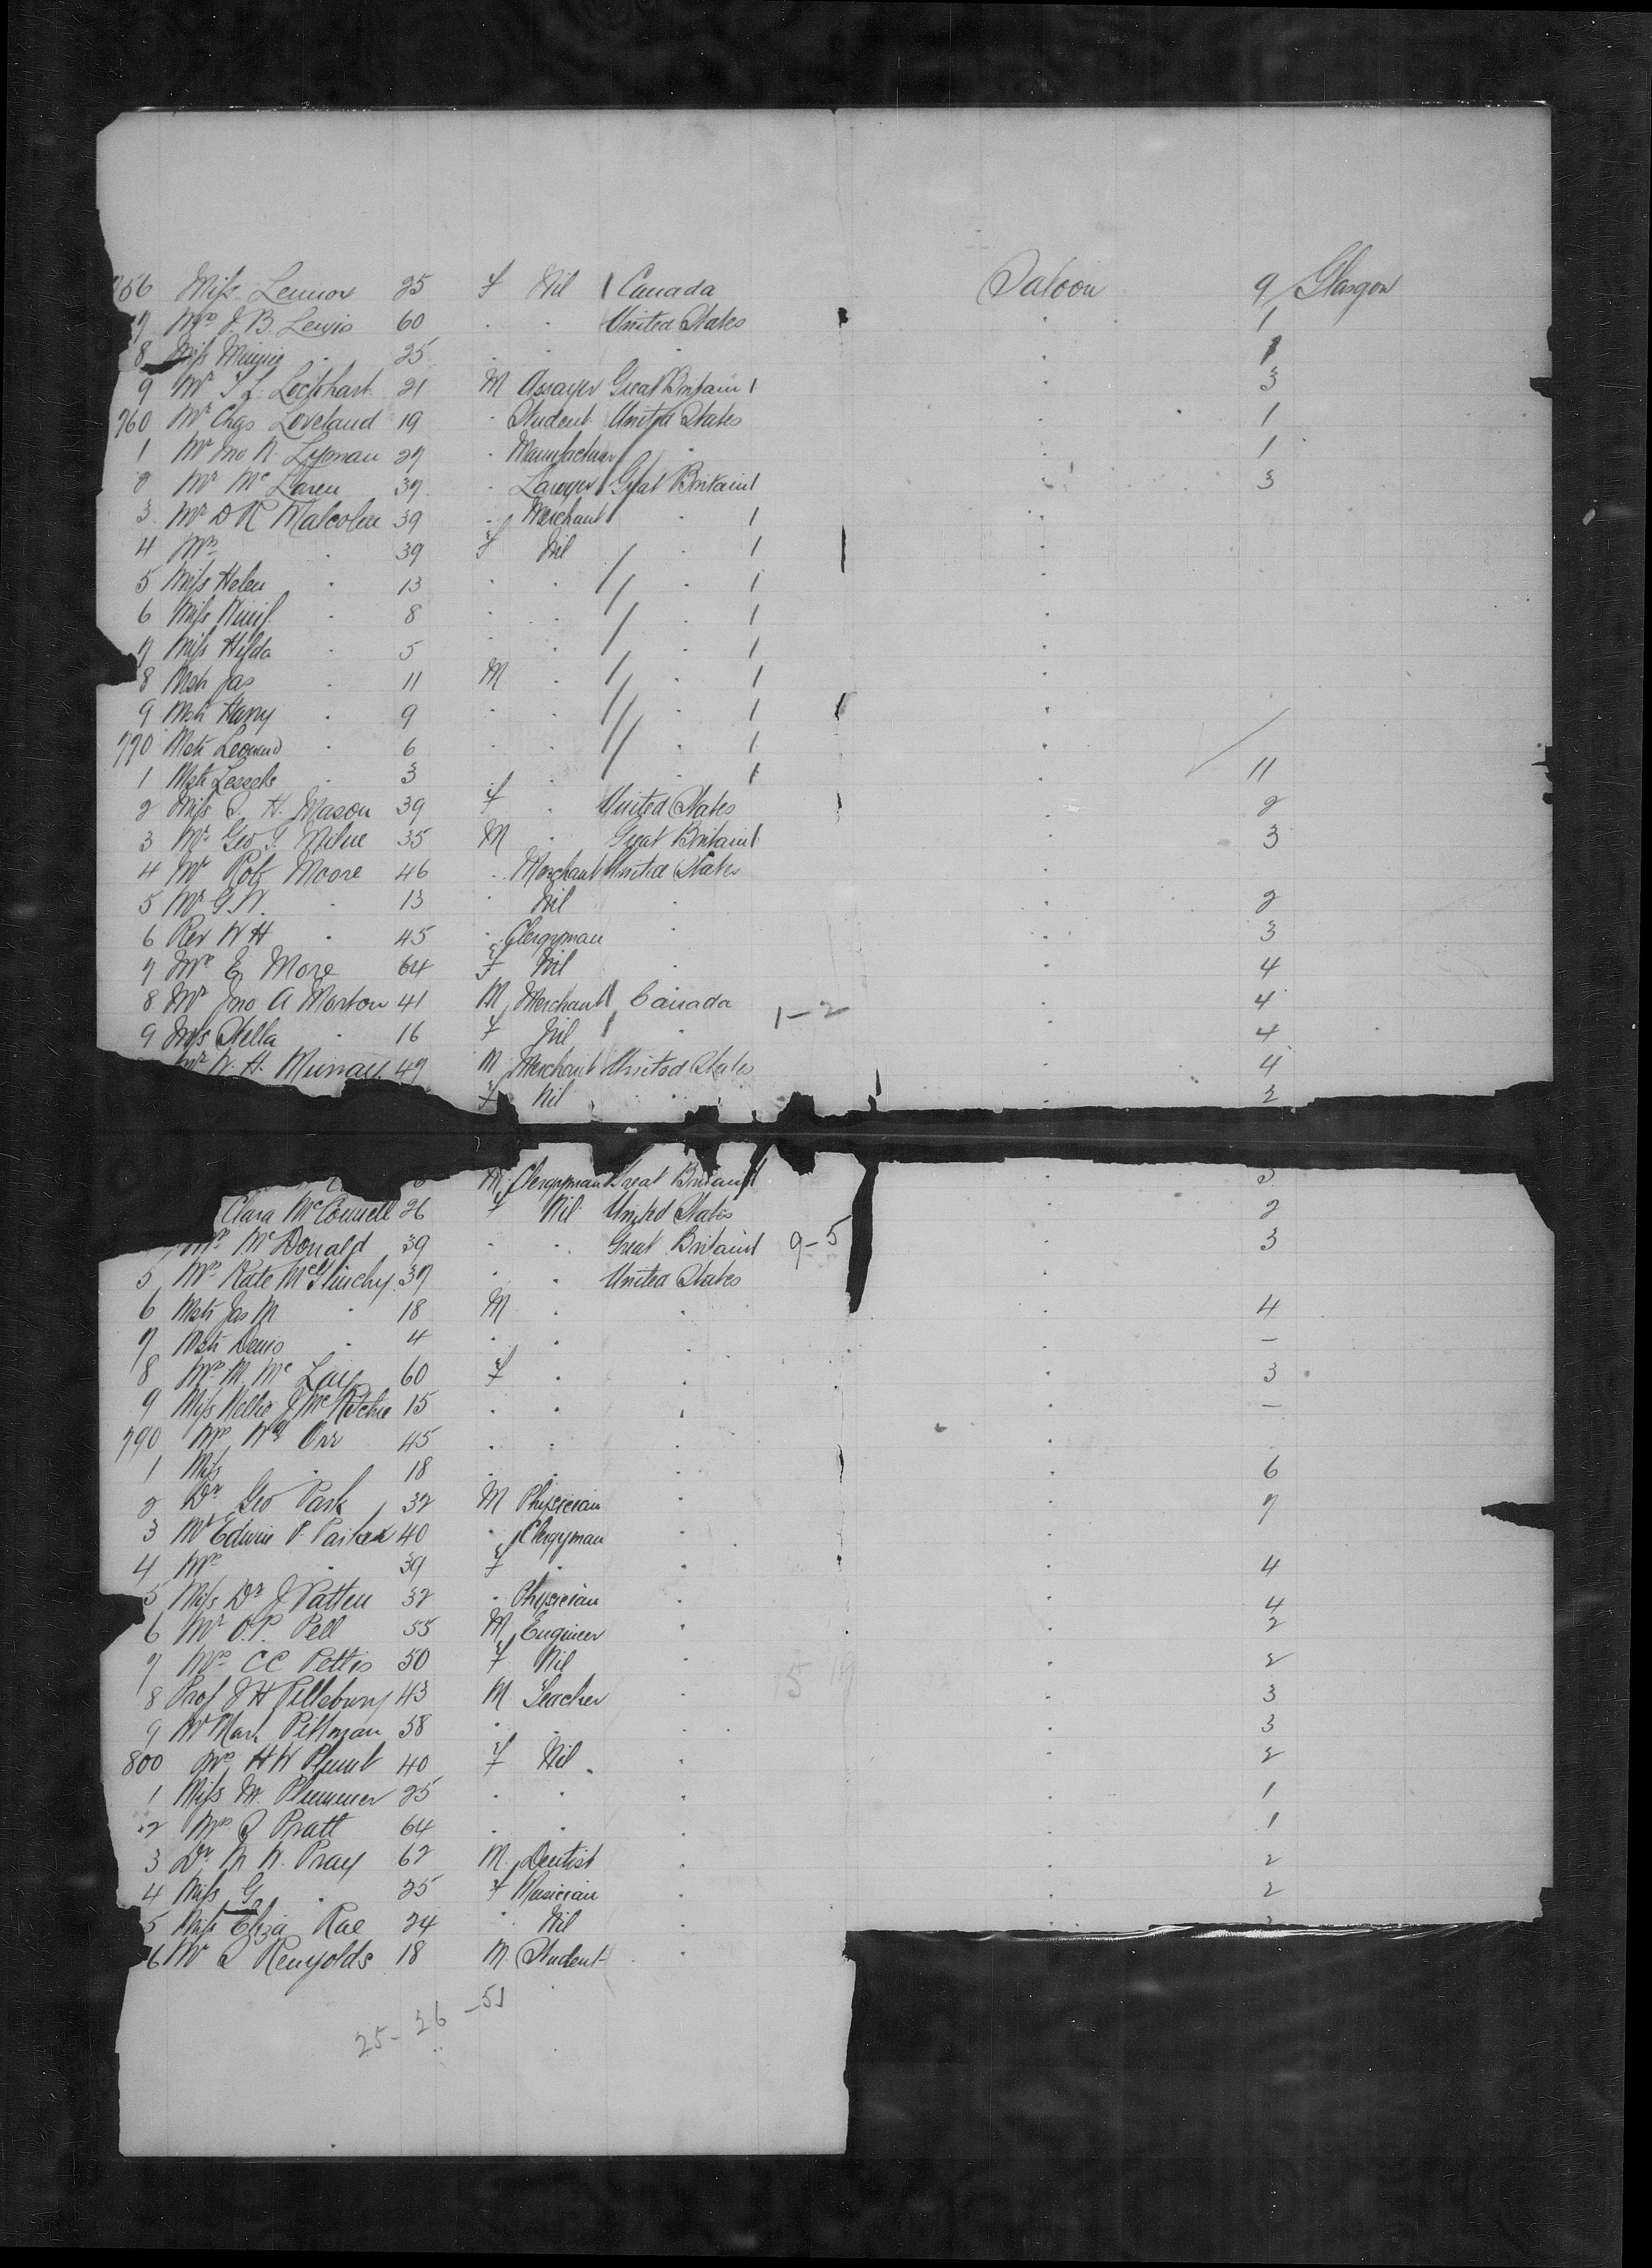 Miss Lennox 25 f Nil / Canada Saloon 9 Glasgow
7 Mrs J. B. Lewis 60 . . United States . 1
8 Miss Minnie . 25 . . . . 1
9 Mr Lockhart 21 M Assayer Great Britain 1 . 3
760 Mr Chas Loveland 19 . Student United States . 1
1 Mr Jno N. Lyman 27 . Manufacturer . . 1
2 Mr McLaren 37 . Lawyer Great Britain 1 . 3
3 Mr D R Malcolm 39 . Merchant . 1 .
4 Mrs . 39 f Nil / . 1 .
5 Miss Helen . 13 . . / . 1 .
6 Miss Winif. . 8 . . / . 1 .
7 Miss Hilda . 5 . . / . 1 .
8 Mstr Jas . 11 M . / . 1 .
9 Mstr Harry . 9 . . / . 1 .
770 Mstr Leonard . 6 . . / . 1 .
1 Mstr . 3 . . / . 1 . 11
2 Miss H. Mason 39 f . United States . 2
3 Mr Geo G. Milne 35 M . Great Britain 1 . 3
4 Mr Robt Moore 46 . Merchant United States .
5 Mr G. W. . 13 . Nil . . 2
6 Rev W H . 45 . Clergyman . . 3
7 Mrs E More 64 f Nil . . 4
8 Mr Jno A Morton 41 M Merchant / Canada 1-2 . 4
9 Miss Stella . 16 f Nil / . . 4
Mr W. H. Murray 47 M Merchant United States . 4
f Nil . . 2
M Clergyman Great Britain 1 . 3
Clara McConnell 26 f Nil United States . 2
Mrs McDonald 39 . . Great Britain 1 9-5 . 3
5 Mrs Kate McGlinchy 37 . . United States .
6 Mstr Jas M . 18 M . . . 4
7 Mstr Denis . 4 . . . . -
8 Mrs M. Mc 60 f . . . 3
9 Miss Nellie J McRitchie 15 . . . . -
790 Mrs Wm Orr 45 . . . .
1 Miss . 18 . . . . 6
2 Dr Geo Park 32 M Physician . . 7
3 Mr Edwin P. Parker 40 . Clergyman . .
4 Mrs . 39 f . . . 4
5 Miss Dr J Patten 32 . Physician . . 4
6 Mr O. P. Pell 55 M Engineer . . 2
7 Mrs C C Pettis 50 f Nil . . 2
8 Prof J H Pillsbury 43 M Teacher . . 3
9 Mr Mark Pitman 58 . . . . 3
800 Mrs H W Plumb 40 f Nil . . 2
1 Miss M. Plummer 25 . . . . 1
2 Mrs Pratt 64 . . . . 1
3 Dr M W. Pray 62 M Dentist . . 2
4 Miss G . 25 f Musician . . 2
5 Miss Eliza Rae 24 . Nil . .
6 Mr Reynolds 18 M Student .
25-26-51